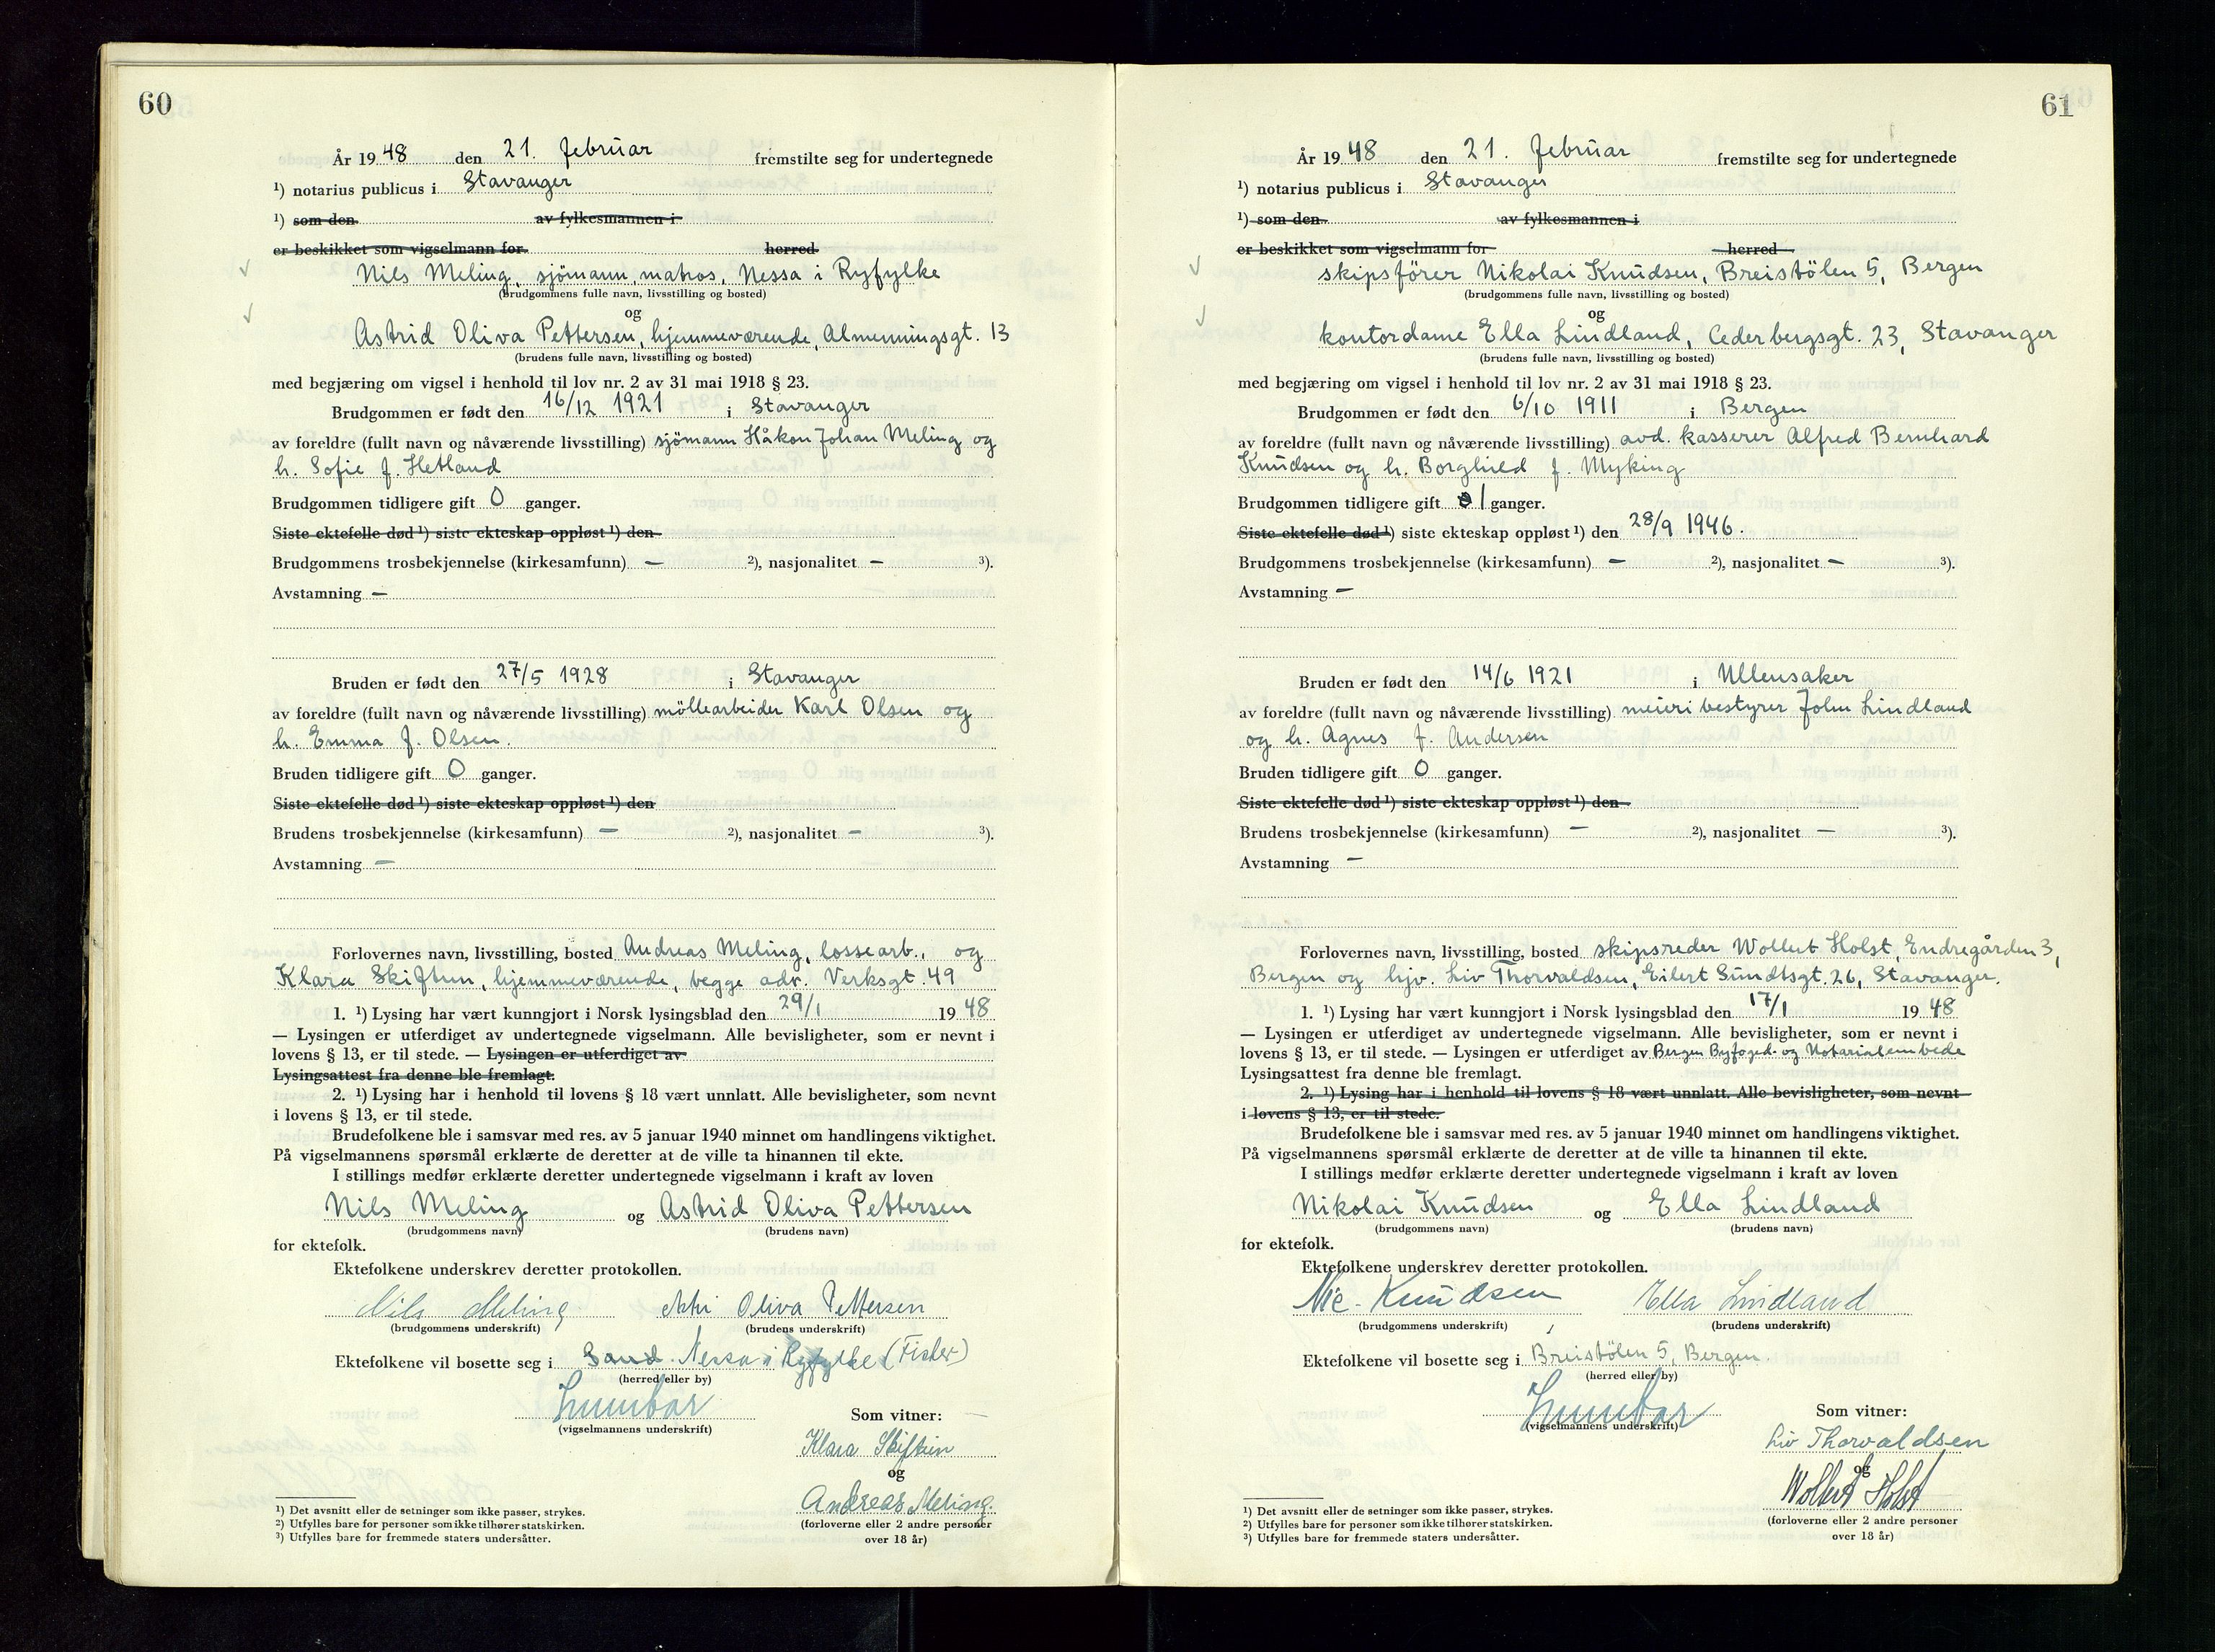 60
År 19 48 den 21. februar fremstilte seg for undertegnede
¹) notarius publicus i Stavanger
¹) som den av fylkesmannen i
er beskikket som vigselmann for herred
Nils Meling, sjömann, matros, Nessa i Ryfylke
(brudgommens fulle navn, livsstilling og bosted)
og
Astrid Oliva Pettersen, hjemmeværende, Almenningsgt. 13
(brudens fulle navn, livsstilling og bosted)
med begjæring om vigsel i henhold til lov nr. 2 av 31 mai 1918 § 23.
Brudgommen er født den 16/12 1921 i Stavanger
av foreldre (fullt navn og nåværende livsstilling) sjömann Håkon Johan Meling og
h. Sofie f. Hetland
Brudgommen tidligere gift 0 ganger.
Siste ektefelle død ¹) siste ekteskap oppløst ¹) den
Brudgommens trosbekjennelse (kirkesamfunn) — ²), nasjonalitet — ³).
Avstamning —
Bruden er født den 27/5 1928 i Stavanger
av foreldre (fullt navn og nåværende livsstilling) möllearbeider Karl Olsen og
h. Emma f. Olsen.
Bruden tidligere gift 0 ganger.
Siste ektefelle død ¹) siste ekteskap oppløst ¹) den
Brudens trosbekjennelse (kirkesamfunn) — ²), nasjonalitet — ³).
Avstamning —
Forlovernes navn, livsstilling, bosted Andreas Meling, lossearb., og
Klara Skiftun, hjemmeværende, begge adr. Verksgt. 49
1. ¹) Lysing har vært kunngjort i Norsk lysingsblad den 29/1 19 48
— Lysingen er utferdiget av undertegnede vigselmann. Alle bevisligheter, som er nevnt i
lovens § 13, er til stede. — Lysingen er utferdiget av
Lysingsattest fra denne ble fremlagt.
2. ¹) Lysing har i henhold til lovens § 18 vært unnlatt. Alle bevisligheter, som nevnt
i lovens § 13, er til stede.
Brudefolkene ble i samsvar med res. av 5 januar 1940 minnet om handlingens viktighet.
På vigselmannens spørsmål erklærte de deretter at de ville ta hinannen til ekte.
I stillings medfør erklærte deretter undertegnede vigselmann i kraft av loven
Nils Meling og Astrid Oliva Pettersen
(brudgommens navn) (brudens navn)
for ektefolk.
Ektefolkene underskrev deretter protokollen.
Nils Meling Oliva Pettersen
(brudgommens underskrift) (brudens underskrift)
Ektefolkene vil bosette seg i Sand Nessa i Ryfylke (Fister)
(herred eller by)
(vigselmannens underskrift)
Som vitner:
Klara Skiftun
og
Andreas Meling.
(forloverne eller 2 andre personer
over 18 år)
¹) Det avsnitt eller de setninger som ikke passer, strykes.
²) Utfylles bare for personer som ikke tilhører statskirken.
³) Utfylles bare for fremmede staters undersåtter.
61
År 19 48 den 21. februar fremstilte seg for undertegnede
¹) notarius publicus i Stavanger
¹) som den av fylkesmannen i
er beskikket som vigselmann for herred
skipsförer Nikolai Knudsen, Breistölen 5, Bergen
(brudgommens fulle navn, livsstilling og bosted)
og
kontordame Ella Lindland, Cederbergsgt. 23, Stavanger
(brudens fulle navn, livsstilling og bosted)
med begjæring om vigsel i henhold til lov nr. 2 av 31 mai 1918 § 23.
Brudgommen er født den 6/10 1911 i Bergen
av foreldre (fullt navn og nåværende livsstilling) avd. kasserer Alfred Bernhard
Knudsen og h. Borghild f. Myking
Brudgommen tidligere gift 1 ganger.
Siste ektefelle død ¹) siste ekteskap oppløst ¹) den 28/9 1946.
Brudgommens trosbekjennelse (kirkesamfunn) — ²), nasjonalitet — ³).
Avstamning —
Bruden er født den 14/6 1921 i Ullensaker
av foreldre (fullt navn og nåværende livsstilling) meieribestyrer John Lindland
og h. Agnes f. Andersen
Bruden tidligere gift 0 ganger.
Siste ektefelle død ¹) siste ekteskap oppløst ¹) den
Brudens trosbekjennelse (kirkesamfunn) — ²), nasjonalitet — ³).
Avstamning —
Forlovernes navn, livsstilling, bosted skipsreder Wollert Holst, Endregården 3,
Bergen og hjv. Liv Thorvaldsen, Eilert Sundtsgt. 26, Stavanger.
1. ¹) Lysing har vært kunngjort i Norsk lysingsblad den 17/1 19 48
— Lysingen er utferdiget av undertegnede vigselmann. Alle bevisligheter, som er nevnt i
lovens § 13, er til stede. — Lysingen er utferdiget av Bergen Byfoged- og Notarialembede
Lysingsattest fra denne ble fremlagt.
2. ¹) Lysing har i henhold til lovens § 18 vært unnlatt. Alle bevisligheter, som nevnt
i lovens § 13, er til stede.
Brudefolkene ble i samsvar med res. av 5 januar 1940 minnet om handlingens viktighet.
På vigselmannens spørsmål erklærte de deretter at de ville ta hinannen til ekte.
I stillings medfør erklærte deretter undertegnede vigselmann i kraft av loven
Nikolai Knudsen og Ella Lindland
(brudgommens navn) (brudens navn)
for ektefolk.
Ektefolkene underskrev deretter protokollen.
Nic. Knudsen Ella Lindland
(brudgommens underskrift) (brudens underskrift)
Ektefolkene vil bosette seg i Breistölen 5, Bergen.
(herred eller by)
(vigselmannens underskrift)
Som vitner:
Liv Thorvaldsen
og
Wollert Holst
(forloverne eller 2 andre personer
over 18 år)
¹) Det avsnitt eller de setninger som ikke passer, strykes.
²) Utfylles bare for personer som ikke tilhører statskirken.
³) Utfylles bare for fremmede staters undersåtter.